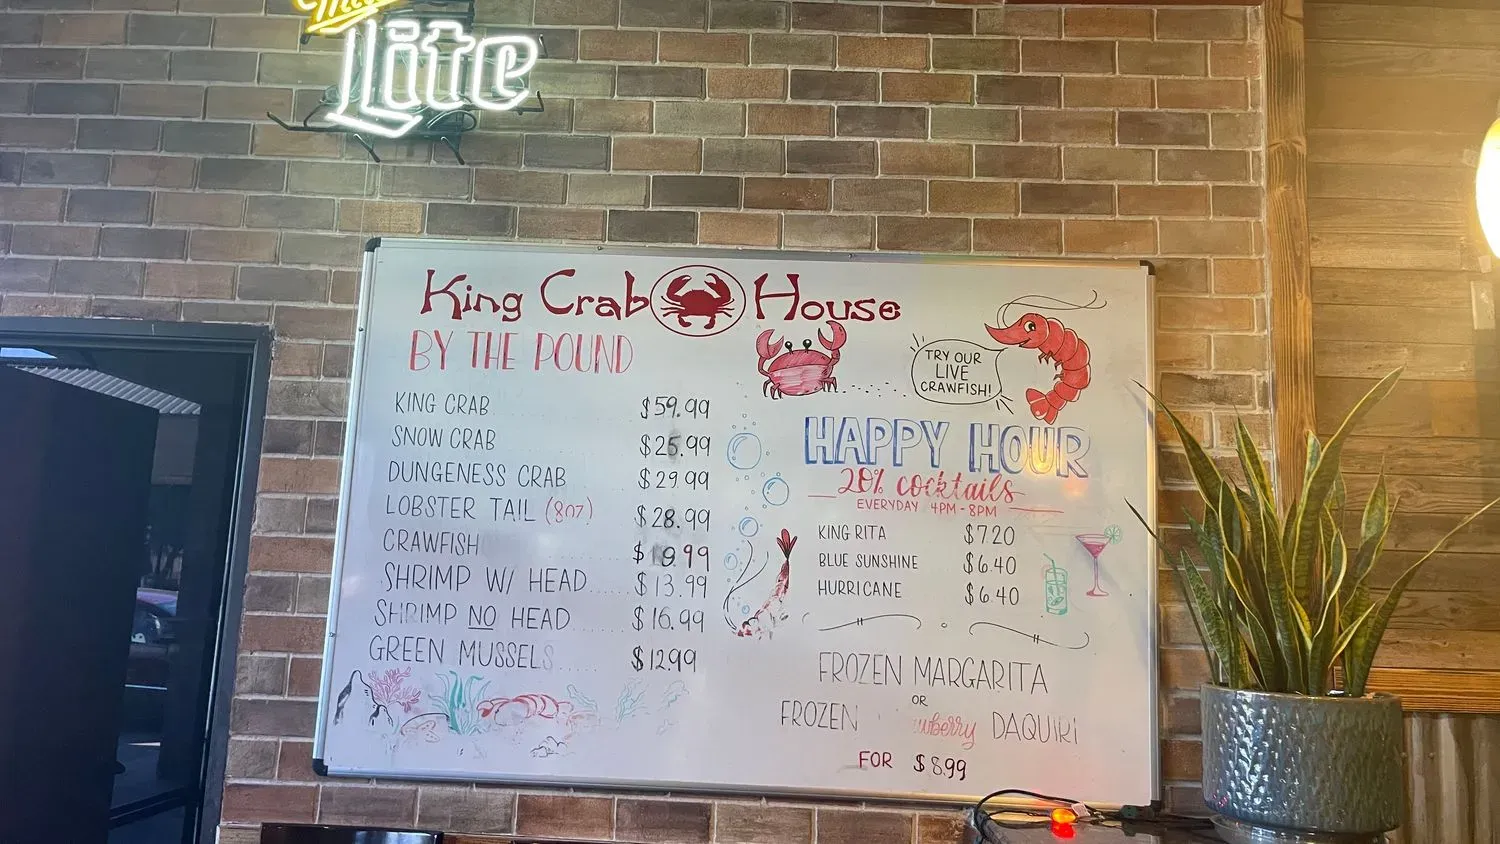 Lite
King Crab House
BY THE POUND
KING CRAB $59.99
SNOW CRAB $25.99
DUNGENESS CRAB $29.99
LOBSTER TAIL (8oz) $28.99
CRAWFISH
SHRIMP W/ HEAD..... $13.99
SHRIMP NO HEAD..... $16.99
GREEN MUSSELS..... $12.99
TRY OUR
LIVE
CRAWFISH!
HAPPY HOUR
20% cocktails
EVERYDAY 4PM-8PM
KING RITA $7.20
BLUE SUNSHINE $6.40
HURRICANE $6.40
FROZEN MARGARITA
OR
FROZEN DAQUIRI
FOR $8.99